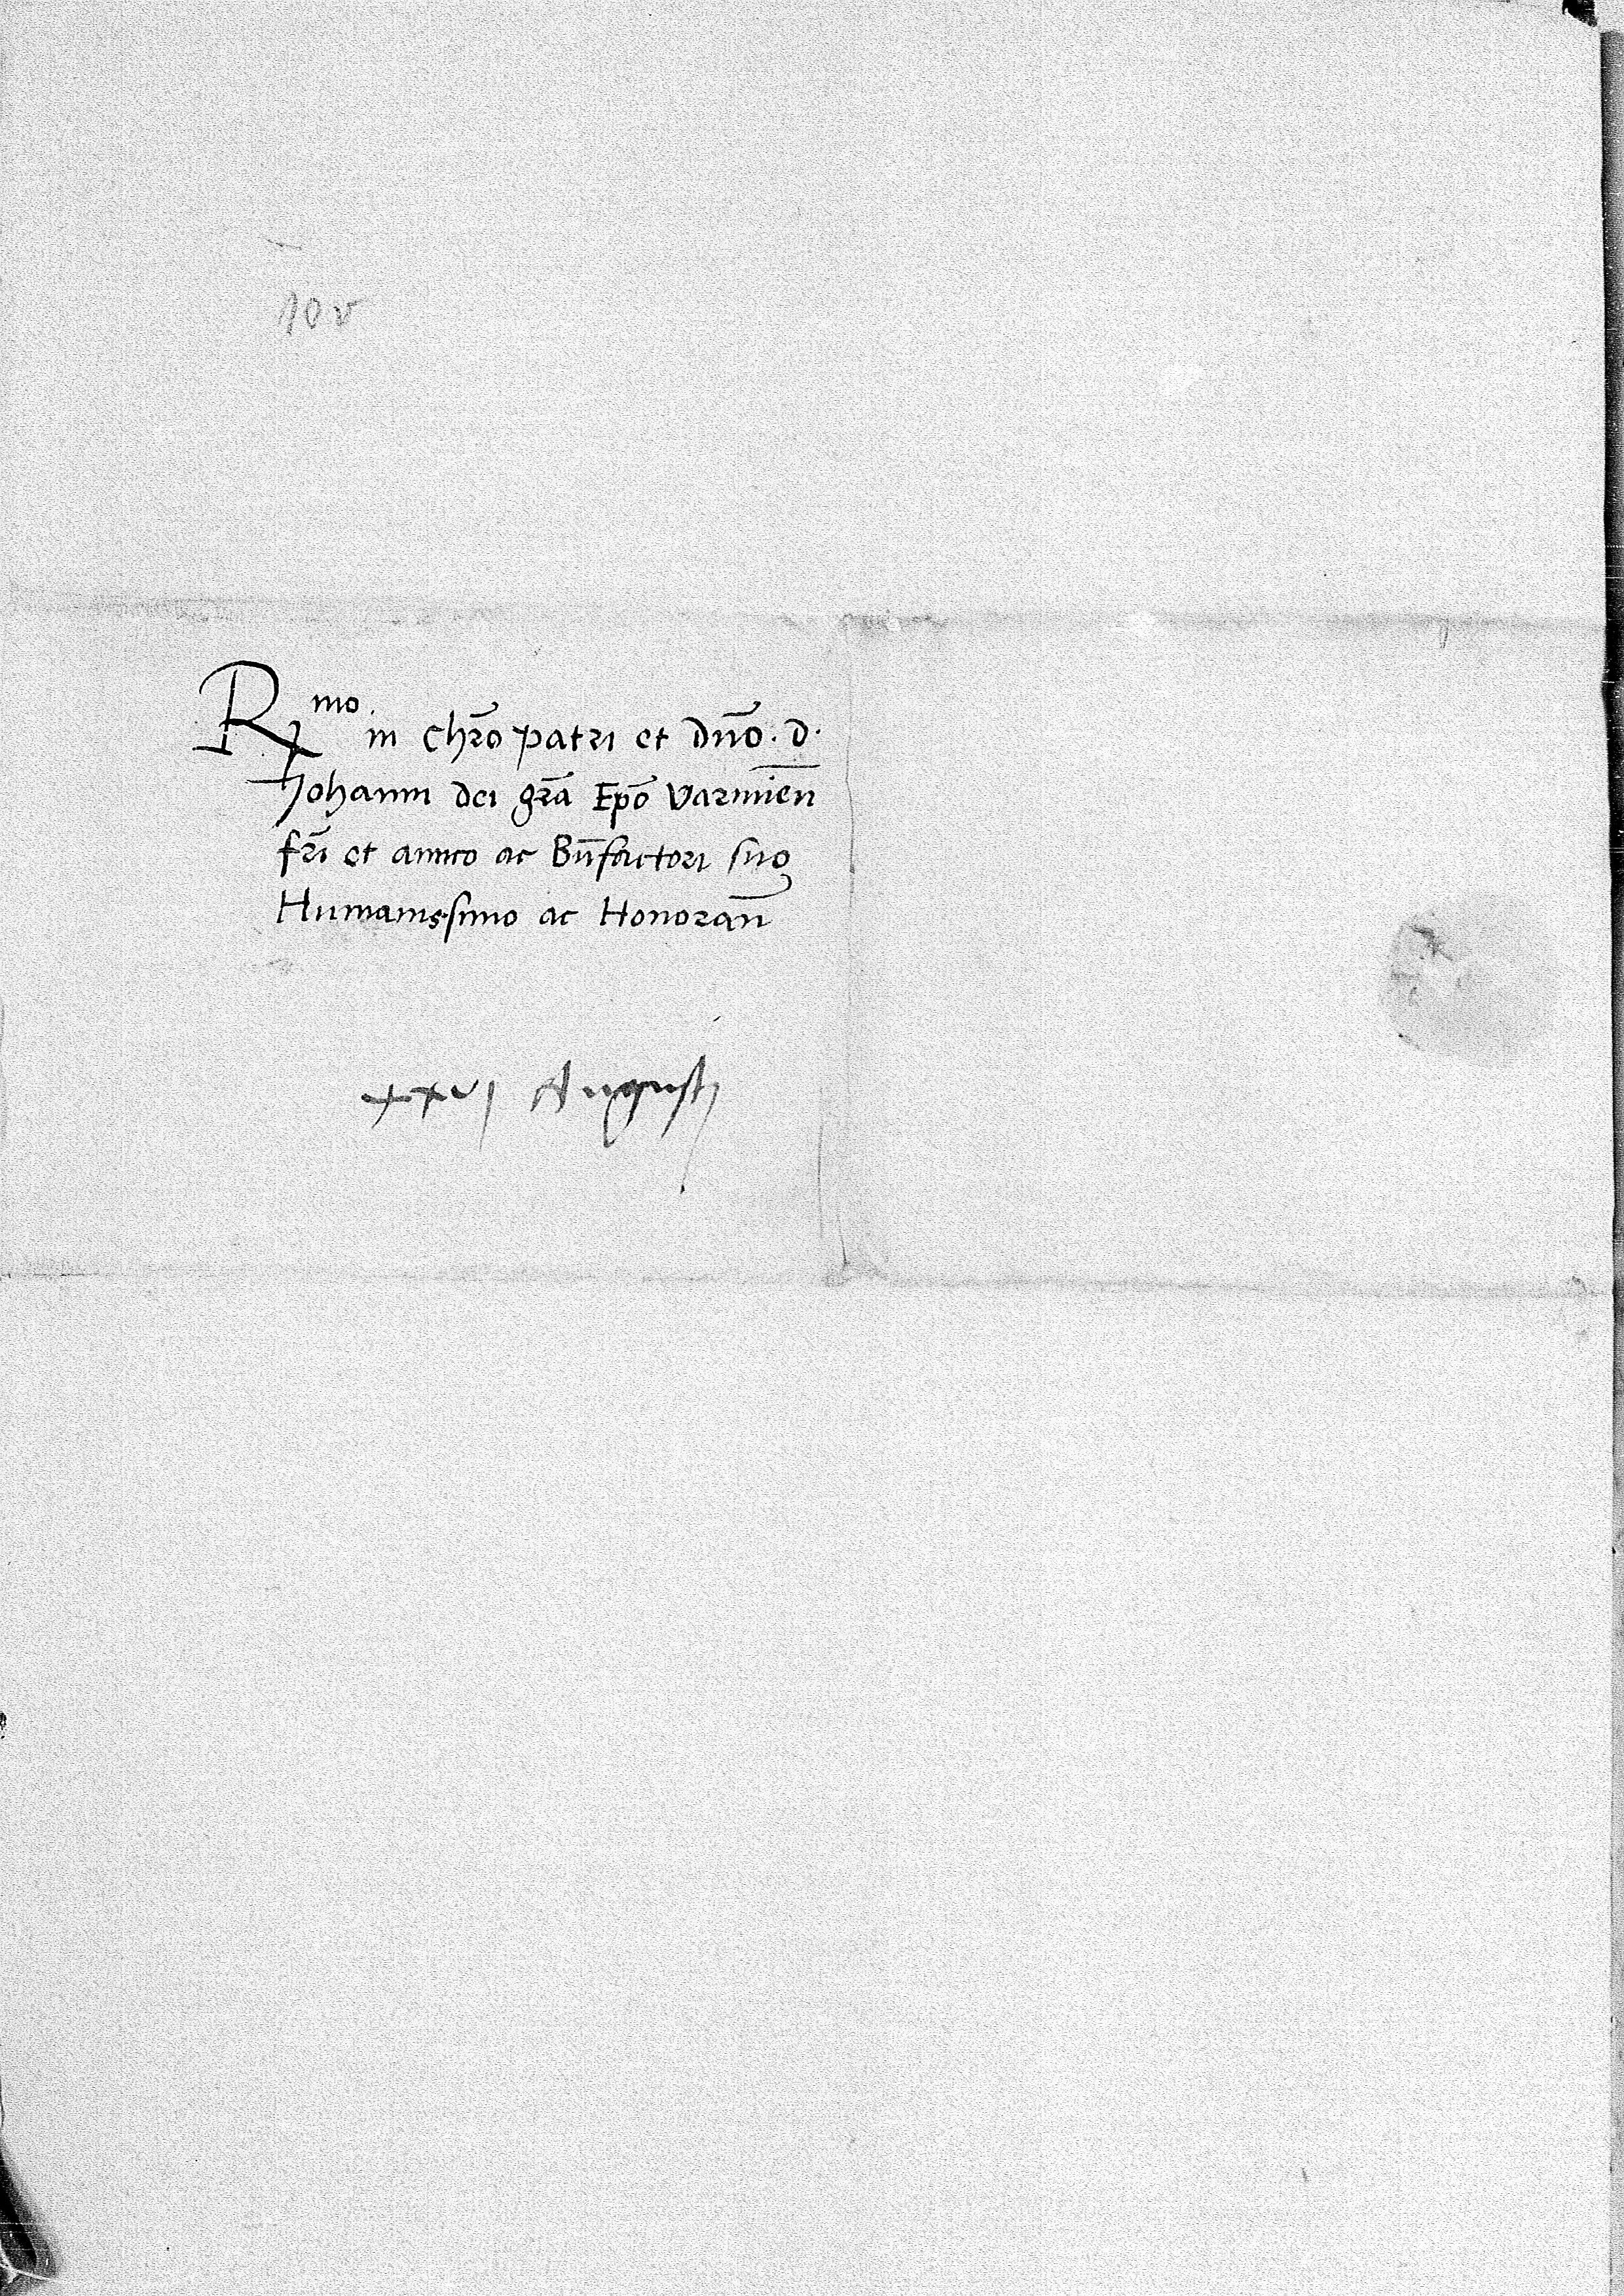 10v
Rmo in chr̄o patri et dn̄o. d.
Johanni dei gr̄a Ep̄o Varmien̄
fr̄i et amico ac Bn̄factori suo
Humanissimo ac Honoran̄
xxvj Augusti